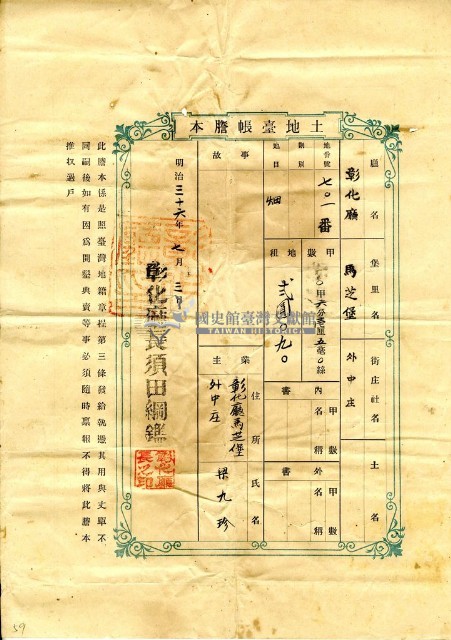 土地臺帳謄本
廳名
彰化廳
堡里名
馬芝堡
街庄社名
外中庄
土名
地番號
七〇一番
類別
地目
畑
甲數
〇甲六分壱厘五毫〇絲
地租
弐圓〇九〇
內書
甲數
名稱
外書
甲數
名稱
事故
業主
住所
彰化廳馬芝堡
外中庄
氏名
梁九珍
明治三十六年七月三日
彰化廳長須田綱鑑
彰化廳
長之印
此謄本係是照臺灣地籍章程第三條發給執憑其用與丈單不
同嗣後如有因爲開墾典賣等事必須隨時稟報不得將此謄本
推收過戶
國史館臺灣文獻館
TAIWAN HISTORICA
59